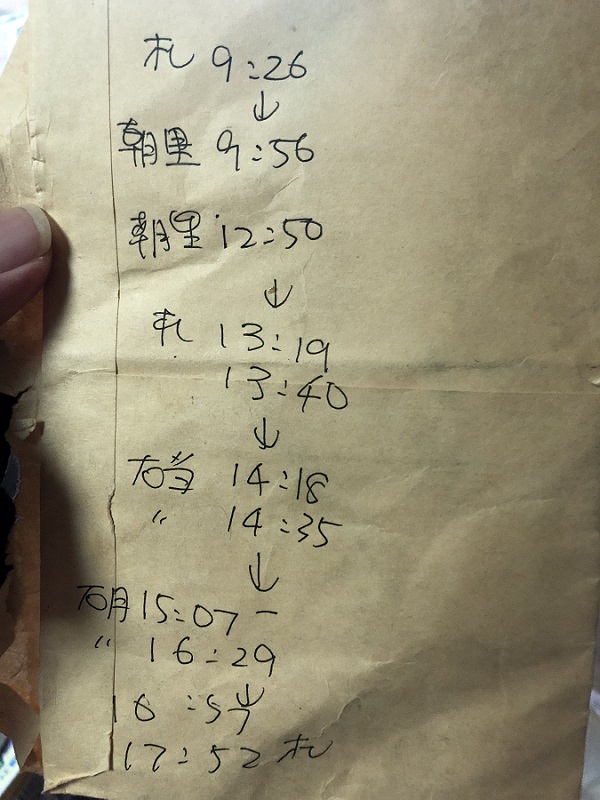 札 9:26
↓
朝里 9:56
朝里 12:50
↓
札 13:19
13:40
↓
石当 14:18
〃 14:35
↓
石月 15:07 ー
〃 16:29
↓
16:57
17:52 札